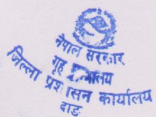 नेपाल सरकार
गृह मन्त्रालय
जिल्ला प्रशासन कार्यालय
दाङ